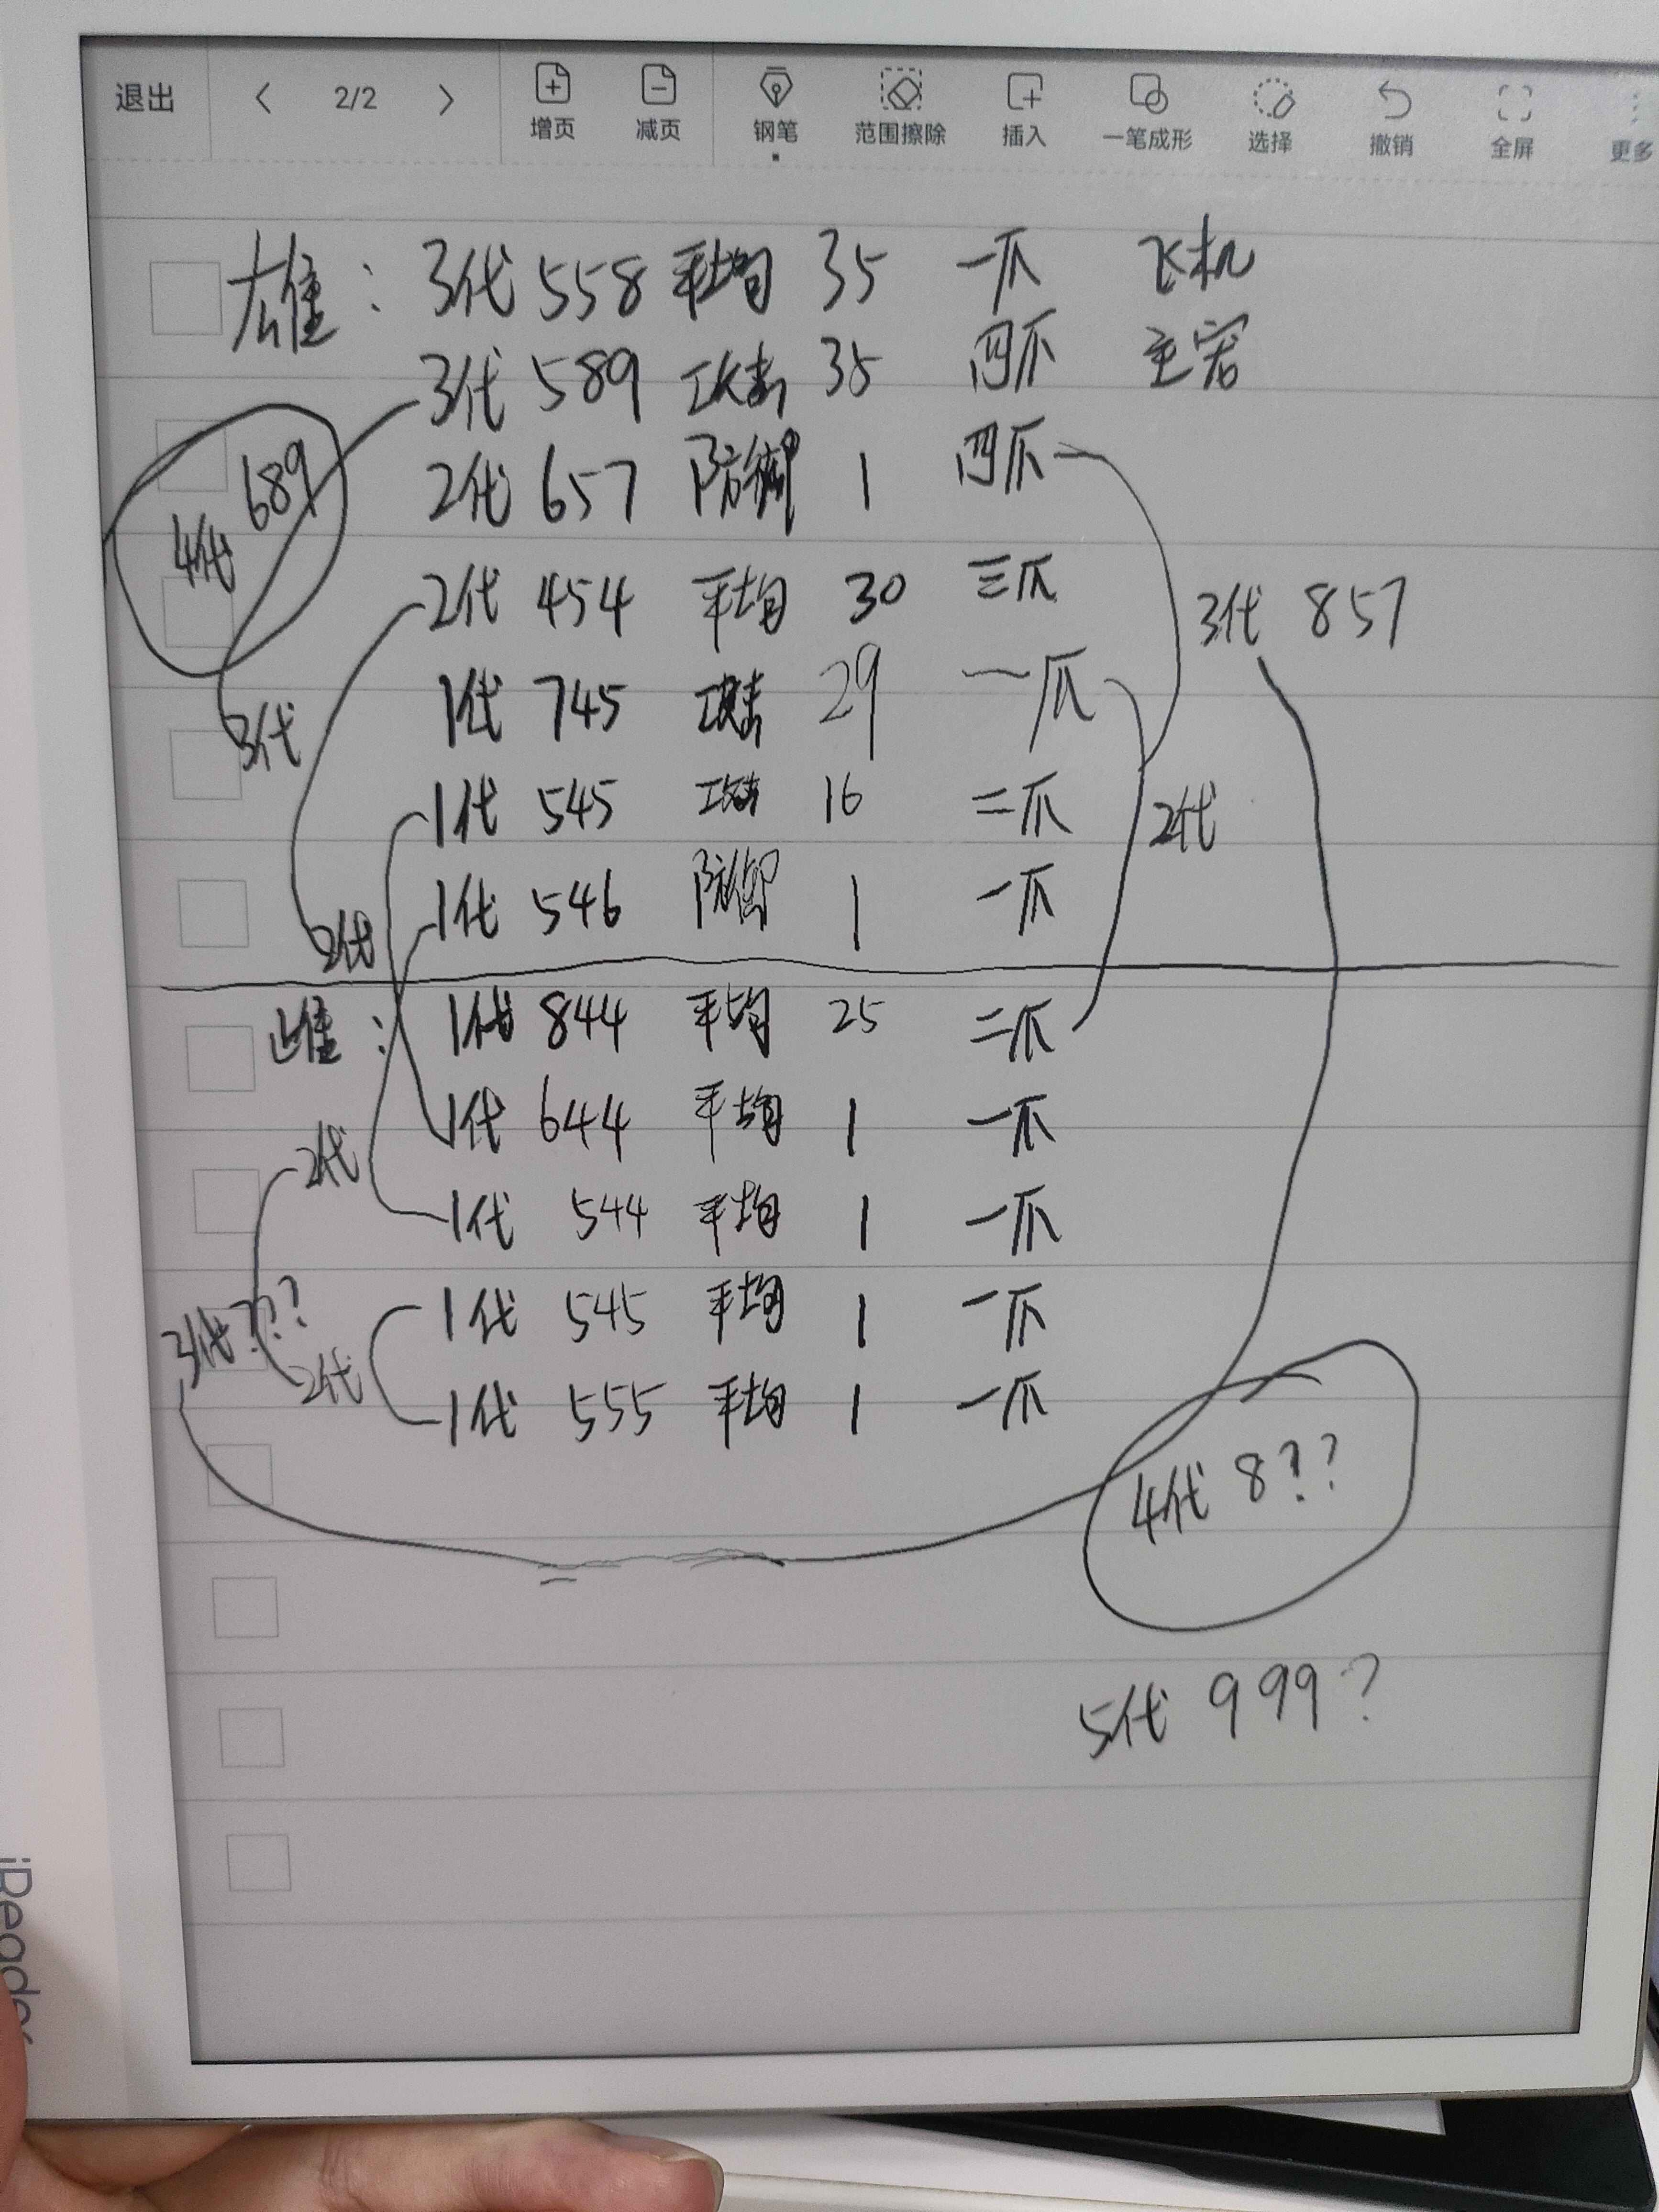 退出 2/2 增页 减页 钢笔 范围擦除 插入 一笔成形 选择 撤销 全屏 更多
雄： 3代 558 平均 35 一爪 飞机
3代 589 攻击 35 四爪 主宠
689
4代
2代 657 防御 1 四爪
2代 454 平均 30 三爪
3代 857
1代 745 攻击 29 一爪
3代
1代 545 攻击 16 二爪
2代
1代 546 防御 1 一爪
2代
雌： 1代 844 平均 25 二爪
1代 644 平均 1 一爪
2代
1代 544 平均 1 一爪
1代 545 平均 1 一爪
3代???
2代
1代 555 平均 1 一爪
4代 8??
5代 999?
iReader